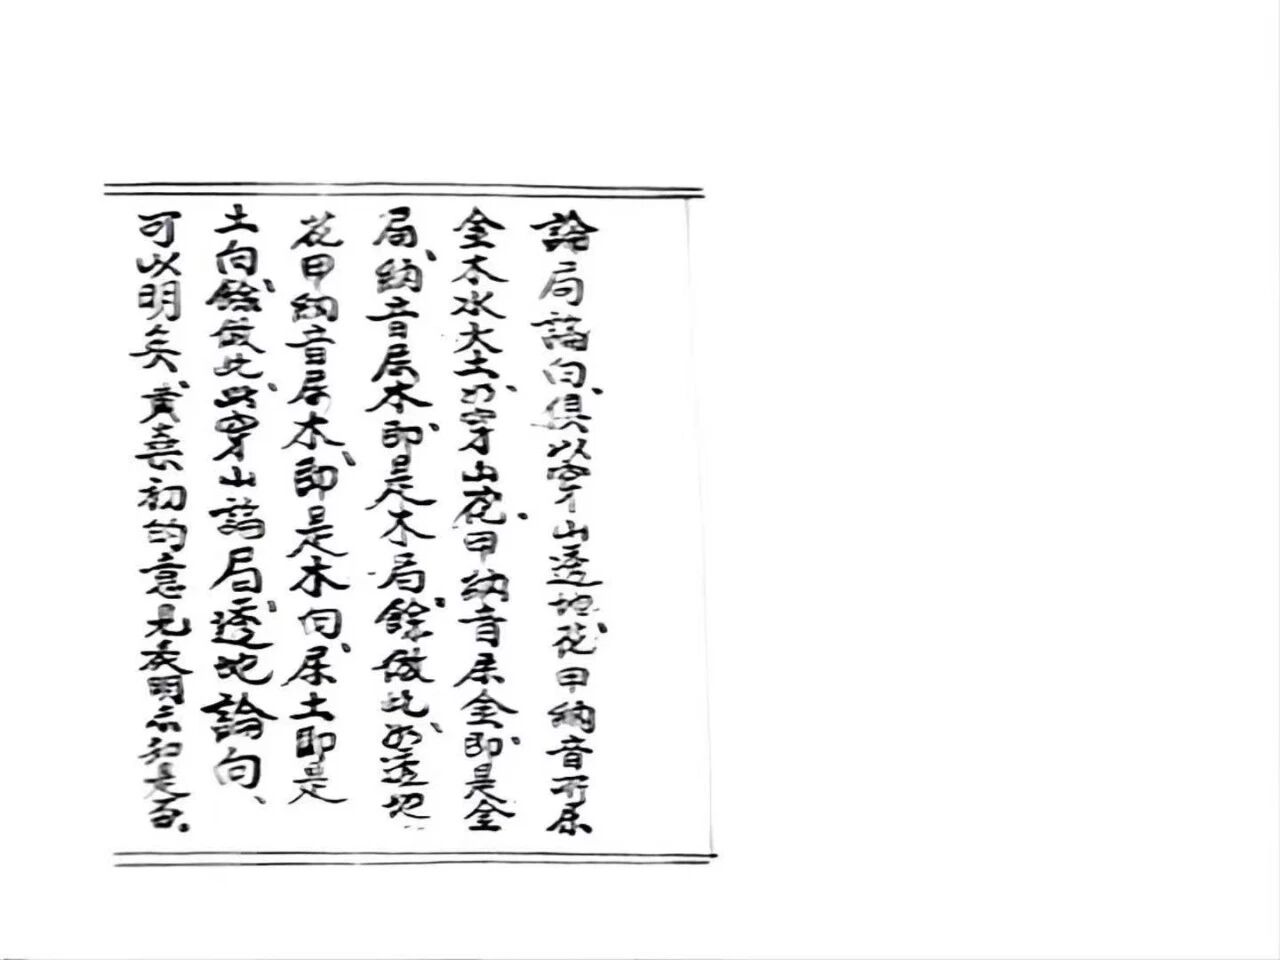 論局論向、俱以穿山透地花甲納音所屬
金木水火土、如穿山花甲納音屬金、即是金
局、納音屬木、即是木局、餘倣此、如透地
花甲納音屬木、即是木向、屬土即是
土向、餘倣此、此穿山論局、透地論向、
可以明矣、黄喜初的意見灰明示知是否。